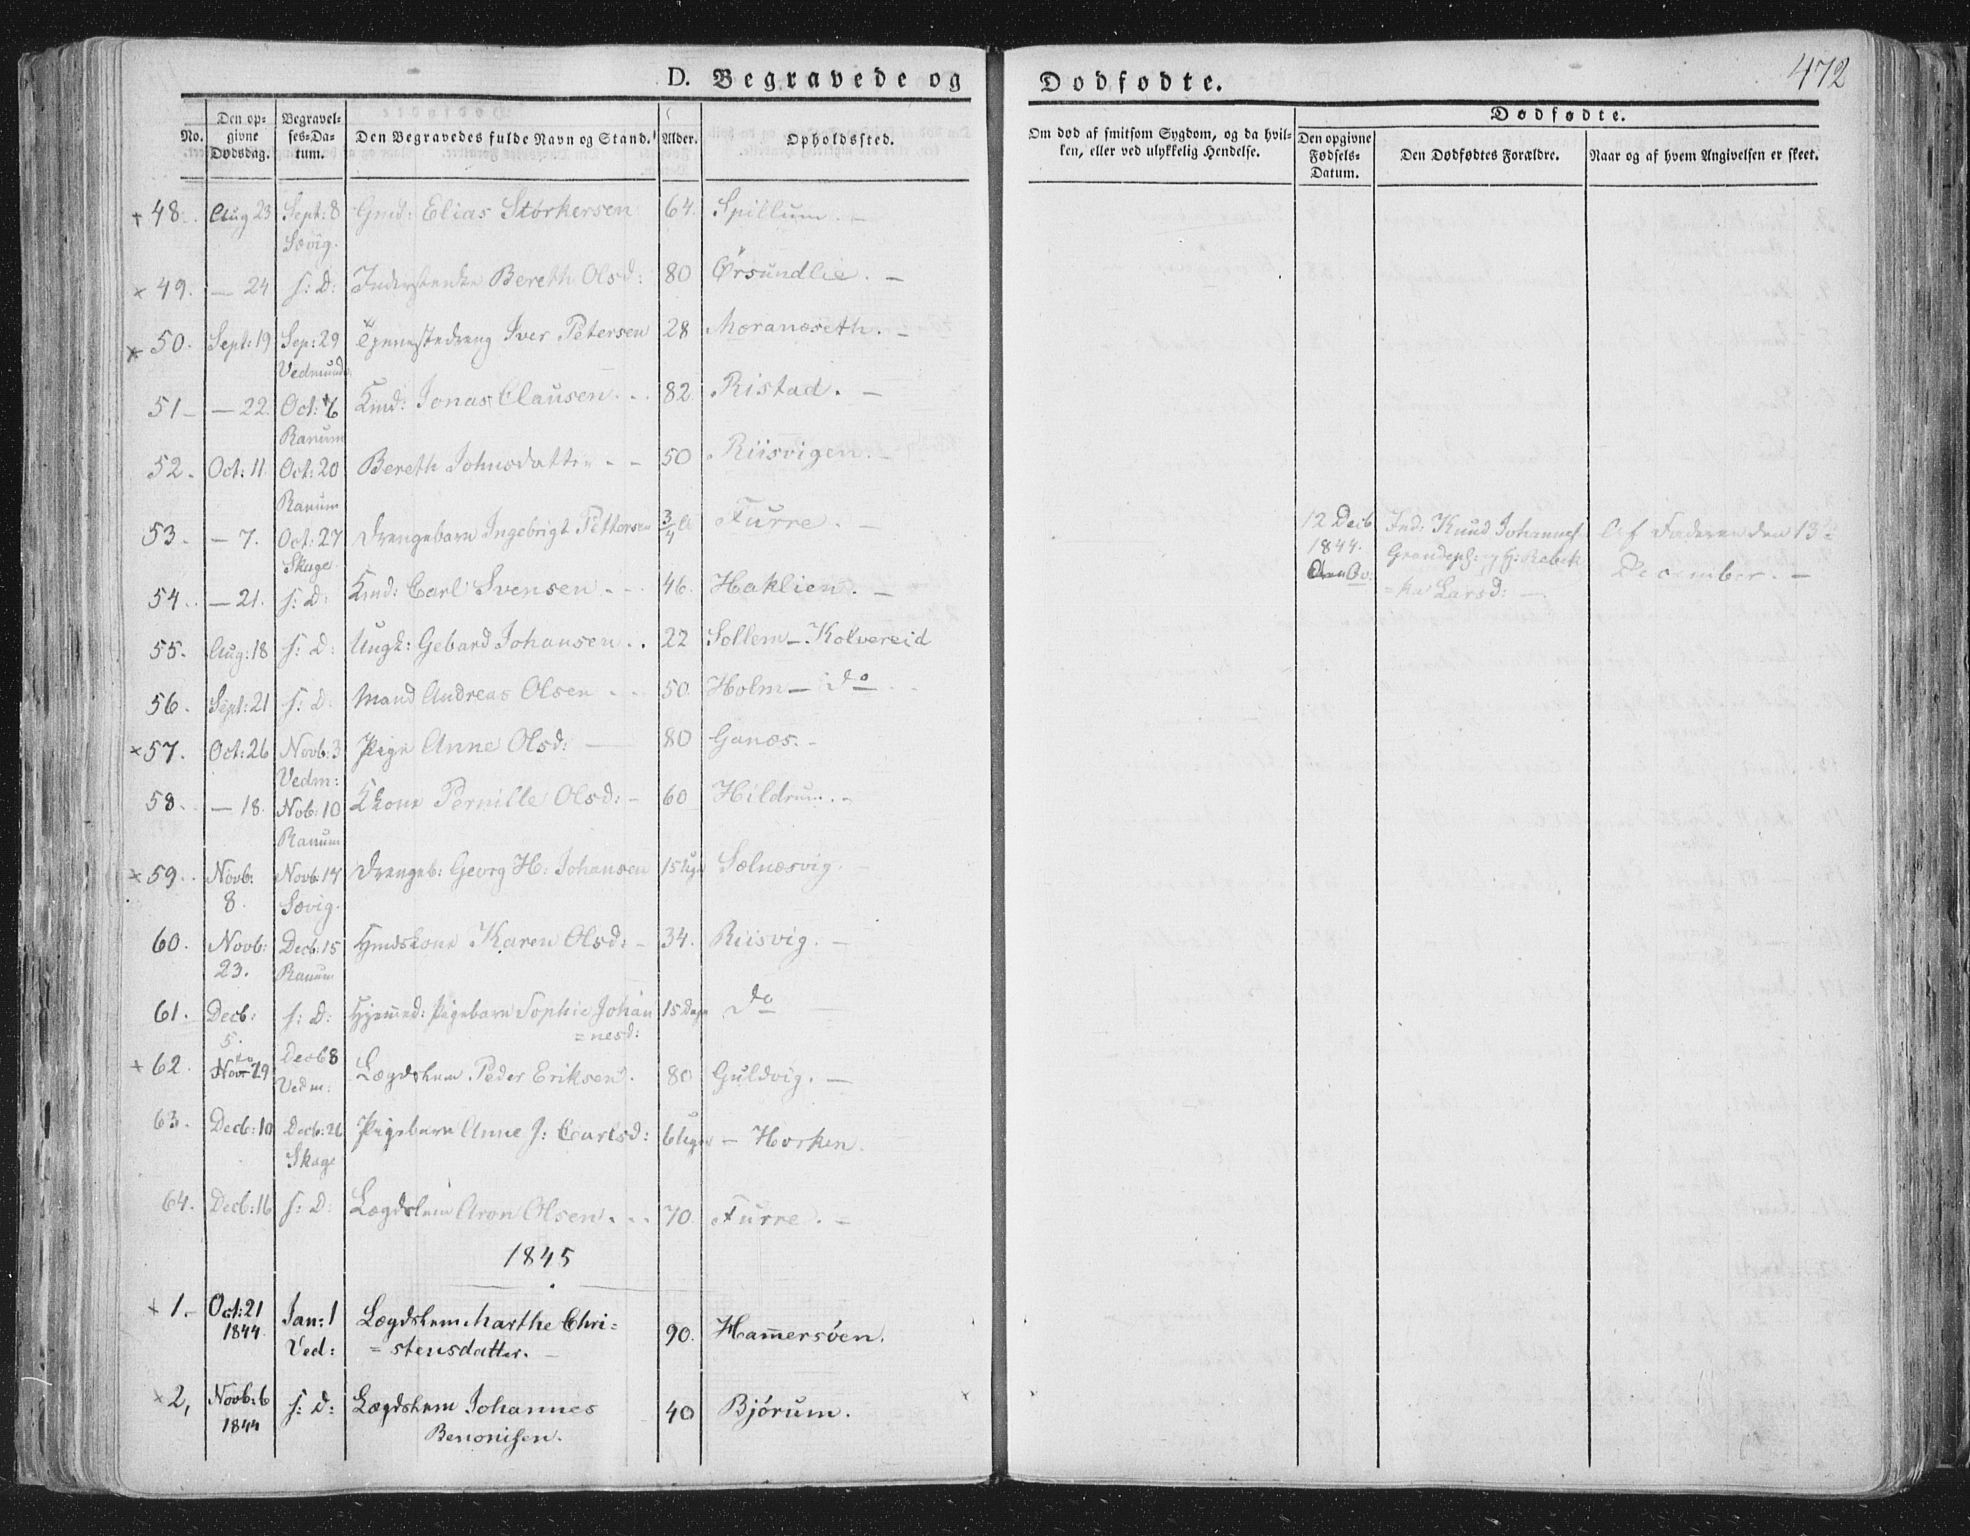 472
D. Begravede og Dødfødte.
No. Den opgivne Dødsdag. Begravelses-Datum. Den Begravedes fulde Navn og Stand. Alder. Opholdssted.
Om død af smitsom Sygdom, og da hvilken, eller ved ulykkelig Hendelse.
Dødfødte.
Den opgivne Fødsels-Datum. Den Dødfødtes Forældre. Naar og af hvem Angivelsen er skeet.
+ 48. Aug 23 Sept: 8 Gmd: Elias Størkersen 64. Spillum. –
Sævig.
× 49. — 24 s: D: Inderstenke Bereth Olsd: 80 Ørsundlie. –
× 50. Sept: 19 Sep: 29 Tjenestedreng Iver Petersen 28 Moranæseth. –
Vedmund:
51 – — 22. Oct: 6 Kmd: Jonas Clausen. 82. Ristad. –
Ranum
52. Oct: 11. Oct: 20 Bereth Johnsdatter – – 50 Riisvigen. –
Ranum
53. – 7. Oct: 27 Drengebarn Ingebrigt Pettersen 3/4 Furre. –
Skage
54. — 21. s: D: Kmd: Carl Svensen 46. Haklien. –
55. Aug: 18 s: D: Ungk: Gebard Johansen 22 Sollem – Kolvereid
56. Sept: 21 s: D: Mand Andreas Olsen 50. Holm – Do
× 57. Oct: 26 Novb: 3 Pige Anne Olsd: — 80 Ganæs. –
Vedm:
58. — 18. Nob: 10 Kkone Pernille Olsd: – 60 Hildrum. –
Ranum
× 59. Novb: 8. Novb: 17 Drengeb: Georg H: Johansen 15 Uger Sælnæsvig.
Sævig.
60. Novb: 23. Decb: 15 Hmdskone Karen Olsd: – 34. Riisvig. –
Ranum
61. Decb: 5. s: D: Hjemmed: Pigebarn Sophie Johan 15 Dage Do
=nesd:
× 62. Nov 29 Decb 8 Lægdslem Peder Eriksen. 80 Guldvig. –
Vedm.
63. Decb: 10 Decb: 26 Pigebarn Anne J: Carlsd: 6 Uger – Horken.
Skage
64. Decb: 16 s: D: Lægdslem Aron Olsen. 70. Furre. –
1845
+ 1. Oct: 21 Jan: 1 Lægdslem Marthe Chri=
1844. Ved: = stensdatter. — 90. Hammersöen.
× 2, Novb: 6 s: D: Lægdslem Johannes 40 Bjørum.
1844 Benonisen.
12 Decb Ind: Knud Johannes Af Faderen den 13de
1844. Grandeph: og H: Rebek
=ka Larsd: — December. –